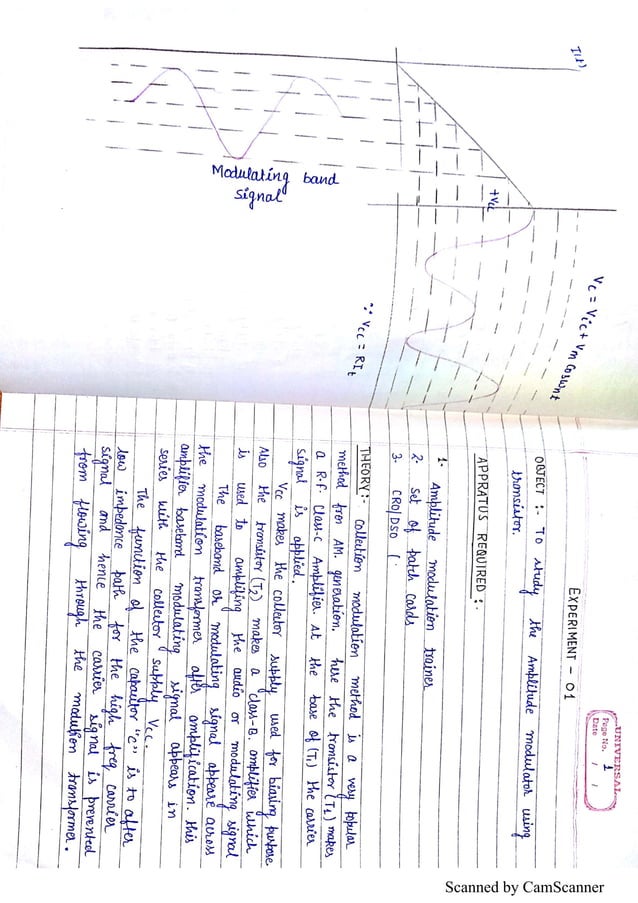 I(t)
+Vcc
Vc = Vic + Vm Cosωnt
∵ Vcc = RIt
Modulating band
signal
UNIVERSAL
Page No. 1
Date / /
EXPERIMENT - 01
OBJECT :- To study the Amplitude modulator using
transistor.
APPRATUS REQUIRED :-
1. Amplitude modulation trainer
2. Set of patch cards
3. CRO/DSO (.
THEORY :- Collection modulation method is a very popular
method fron AM. generation. here the transistor (T1) makes
a R.f. Class-C Amplifier. At the base of (T1) the carrier
signal is applied.
Vcc makes the collector supply used for biasing purpose
Also the transistor (T2) makes a class-B. amplifier which
is used to amplifing the audio or modulating signal
The baseband or modulating signal appease across
the modulation transformer after amplification. this
amplifier baseband modulating signal appears in
series with the collector supply Vcc.
The function of the capaitor "C" is to after
low impedance path for the high freq carrier
signal and hence the carrier signal is prevented
from flowing through the modultion transformer.
Scanned by CamScanner